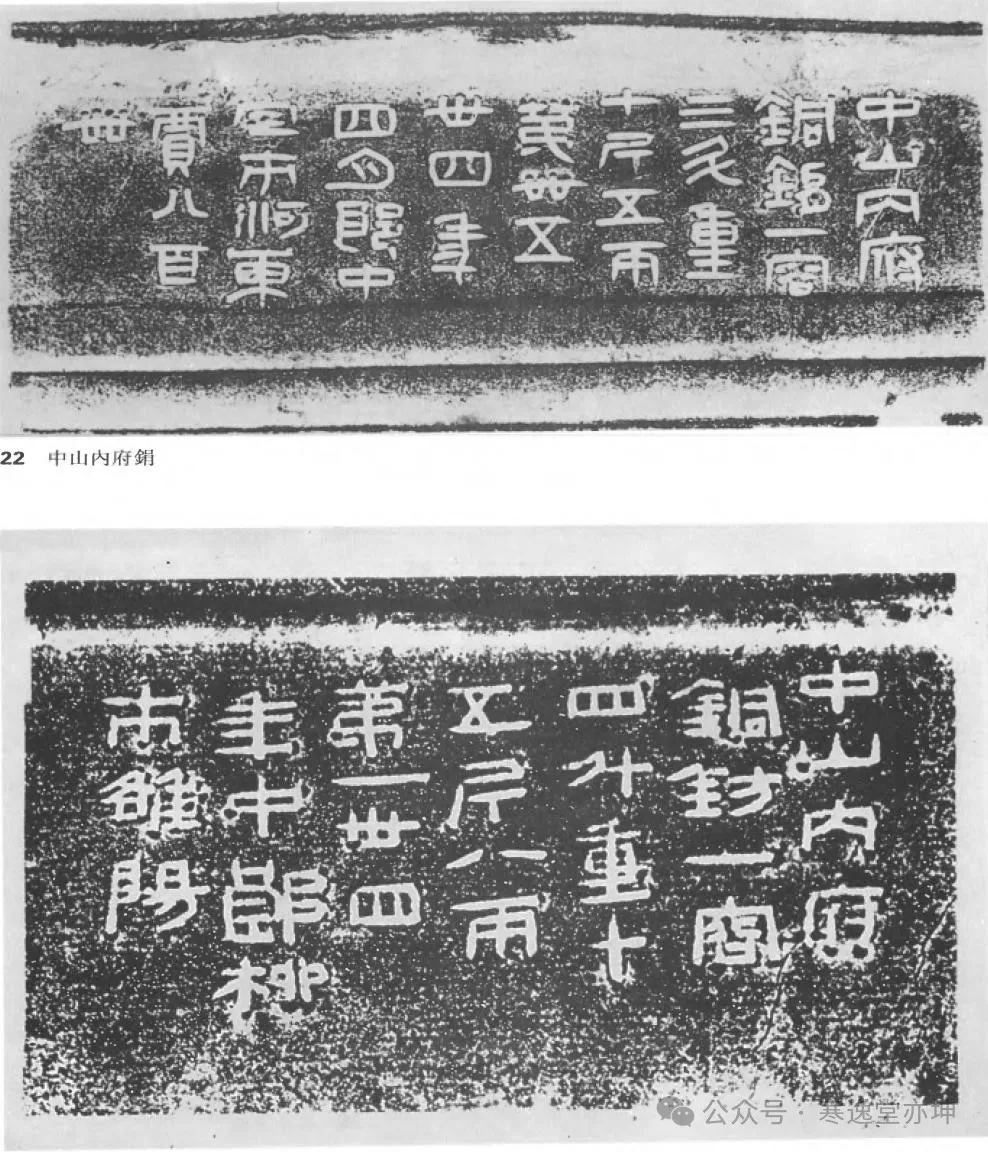 中山内府
銅鋗一容
三斗重
七斤五兩
第卌五
卅四年
四月郎中
定市河東
賈八百
卌
22 中山內府鋗
中山内府
銅鈁一容
四斗重十
五斤八兩
第一卅四
年中郎柳
市雒陽
公众号·寒逸堂亦坤